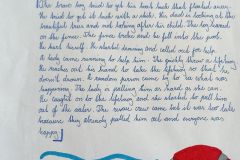 The brave boy tried to get his book back that floated away.
He tried to get it back with a stick. His dad is looking at the
beautiful trees and not looking after his child. The boy leaned
on the fence. The fence broke and he fell into the pool.
He hurt himself. He started drowning and called out for help.
A lady came running to help him. She quickly threw a lifebuoy
He reaches out his hand to take the lifebuoy so that he
doesn't drown. A random person came by to see what was
happening. The lady is pulling him as hard as she can.
He caught on to the lifebuoy and she started to pull him
out of the water. The rescue crew came but it was too late
because they already pulled him out and everyone was
happy.